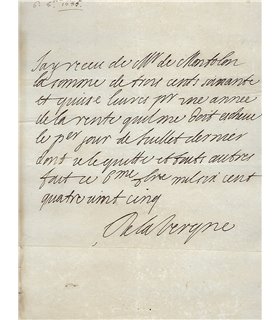 J'ay receu de Mr de Montolon
la somme de trois cents soixante
et quinse livres pr une année
de la rente quil me doit escheue
le per jour de Juillet dernier
dont je le quitte et touts autres
fait ce 6me 9bre mil six cent
quatre vint cinq
De la Vergne